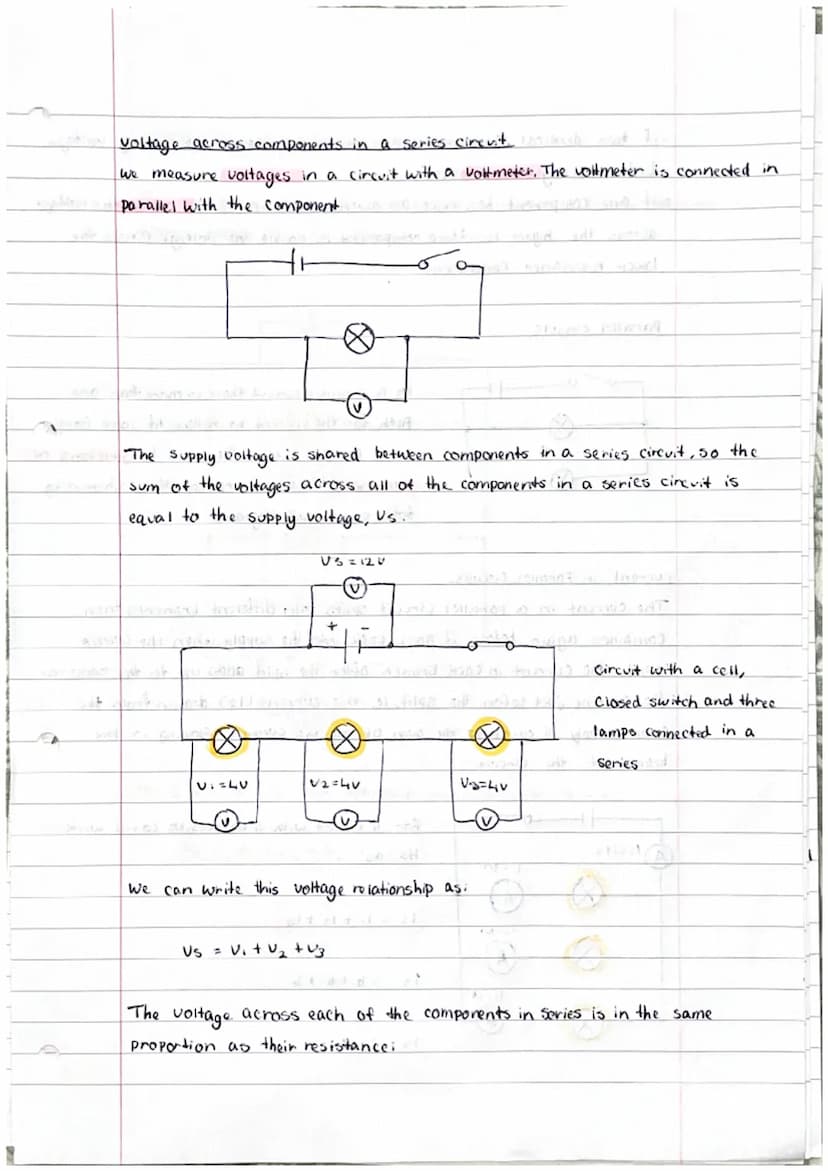 Voltage across components in a series circuit
We measure voltages in a circuit with a voltmeter. The voltmeter is connected in
parallel with the component
V
The supply voltage is shared between components in a series circuit, so the
sum of the voltages across all of the components in a series circuit is
equal to the supply voltage, Vs.
Vs = 12V
V
+ -
Circuit with a cell,
Closed switch and three
lamps connected in a
series
V1 = 4V V2 = 4V V3 = 4V
V V V
We can write this voltage relationship as:
Vs = V1 + V2 + V3
The voltage across each of the components in series is in the same
proportion as their resistance: